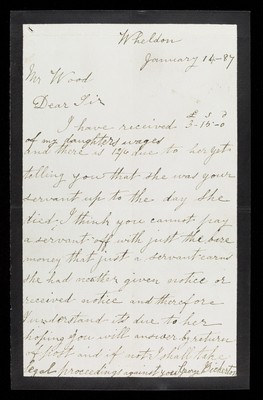 Wheldon
January 14-87
Mr Wood
Dear Sir
I have received £ s d
3-15-0
of my daughters wages
and there is 12/6 due to her yet
telling you that she was your
servant up to the day she
died. I think you cannot pay
a servant off with just the bare
money that just a servant earns
she had neither given notice or
received notice and therefore
I understand its due to her
hoping you will answer by return
of post and if not I shall take
legal proceedings against you